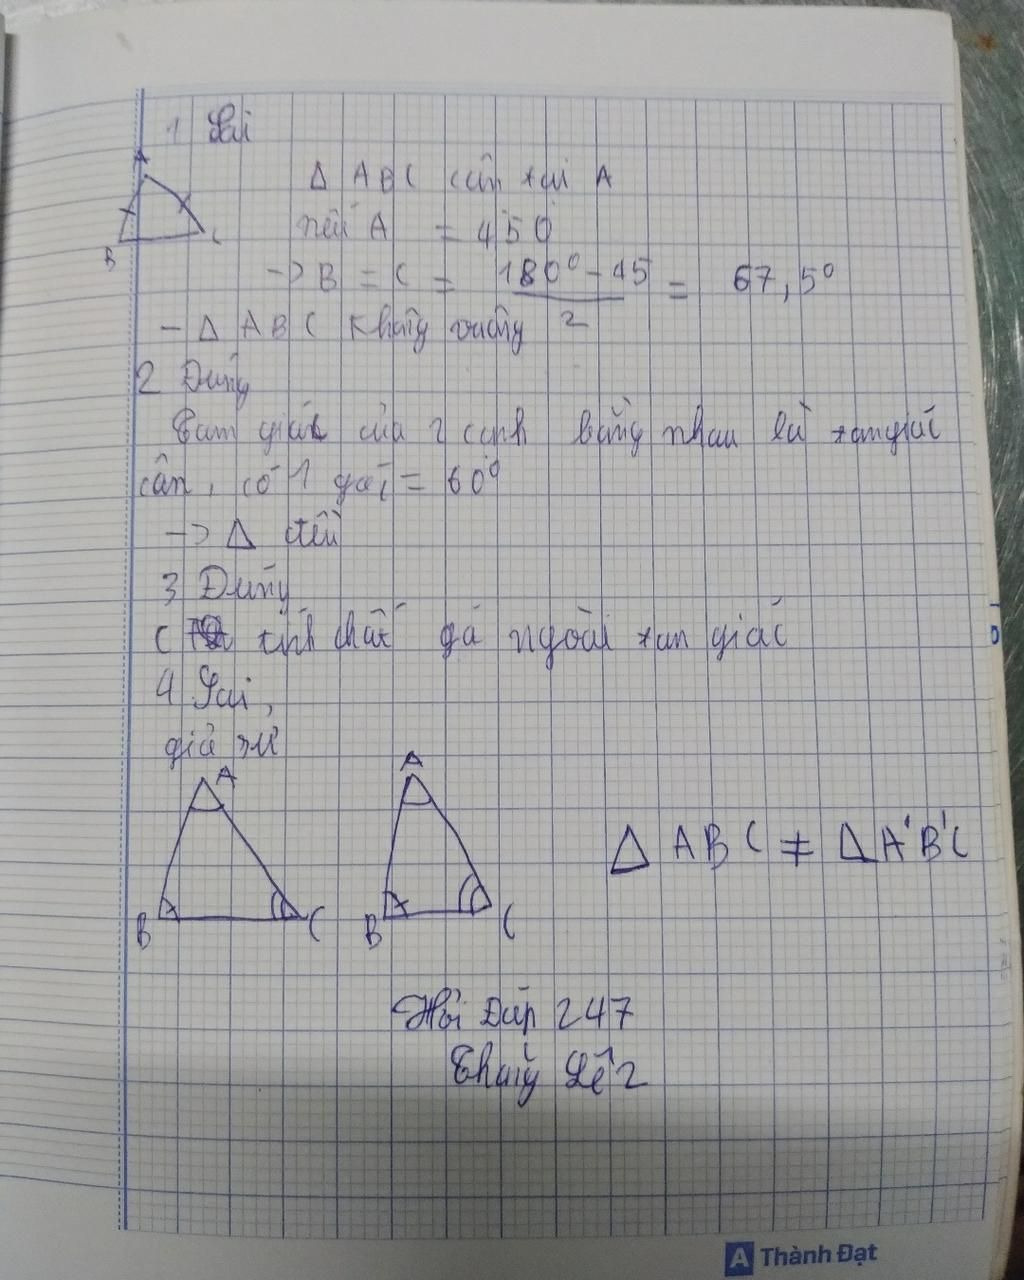 1 Sai
A
B
C
Δ ABC cân tại A
nếu A = 450
-> B = C = 180° - 45 / 2 = 67,5°
- Δ ABC không vuông
2 Đúng
Tam giác của 2 cạnh bằng nhau là tam giác
cân, có 1 góc = 60°
-> Δ đều
3 Đúng
( tính chất gó ngoài tam giác
4 Sai,
giả sử
A
B
C
A
B
C
Δ ABC ≠ Δ A'B'C
Hỏi Đáp 247
A Thành Đạt